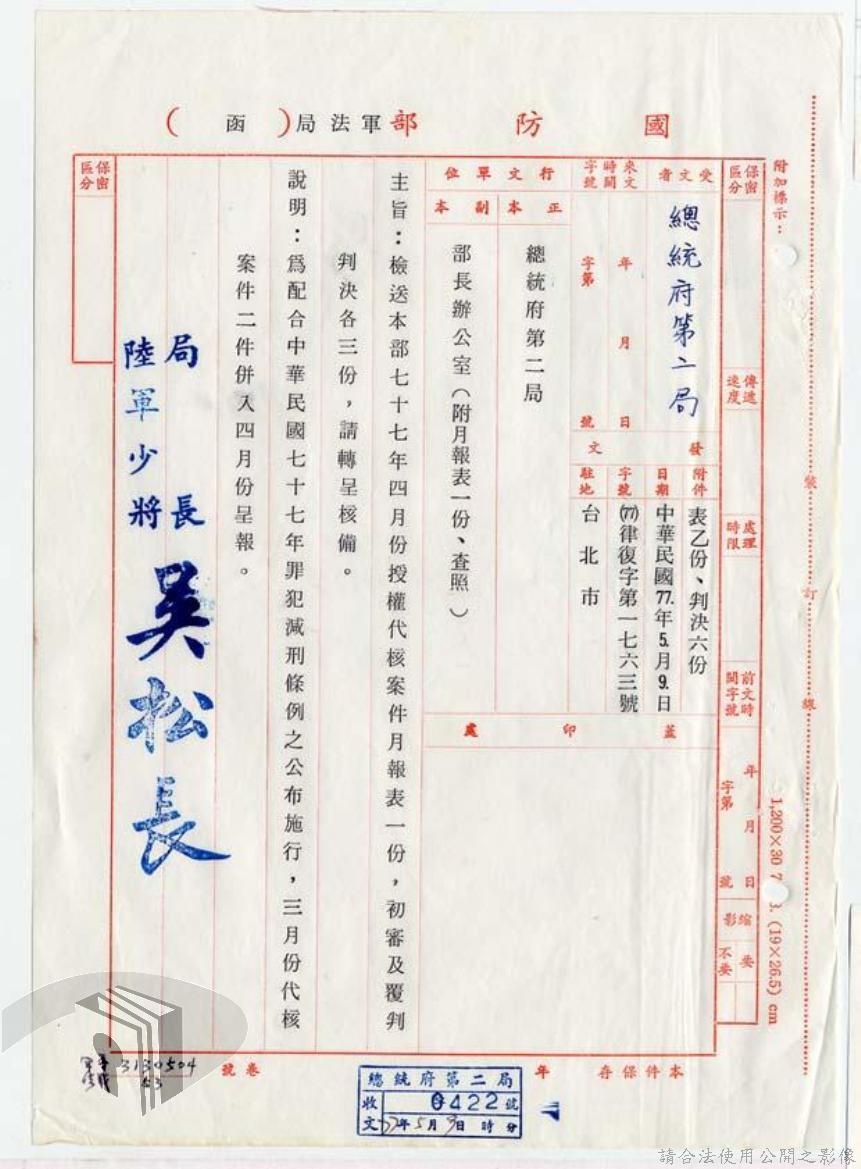 國防部軍法局(函)
附加標示：
裝訂線
1,200×30 7 3. (19×26.5) cm
保密區分
傳遞速度
處理時限
前文時間字號
年月日
字第號
縮影
要
不要
受文者
總統府第二局
來文時間字號
年月日
字第號
發文
附件
表乙份、判決六份
日期
中華民國77.年5.月9.日
字號
(77)律復字第一七六三號
駐地
台北市
行文單位
正本
總統府第二局
副本
部長辦公室（附月報表一份、查照）
蓋印處
主旨：檢送本部七十七年四月份授權代核案件月報表一份，初審及覆判
判決各三份，請轉呈核備。
說明：為配合中華民國七十七年罪犯減刑條例之公布施行，三月份代核
案件二件併入四月份呈報。
局長
陸軍少將
吳松長
保密區分
本件保存年
卷號
3130504
總統府第二局
收文
0422號
77年5月9日時分
請合法使用公開之影像